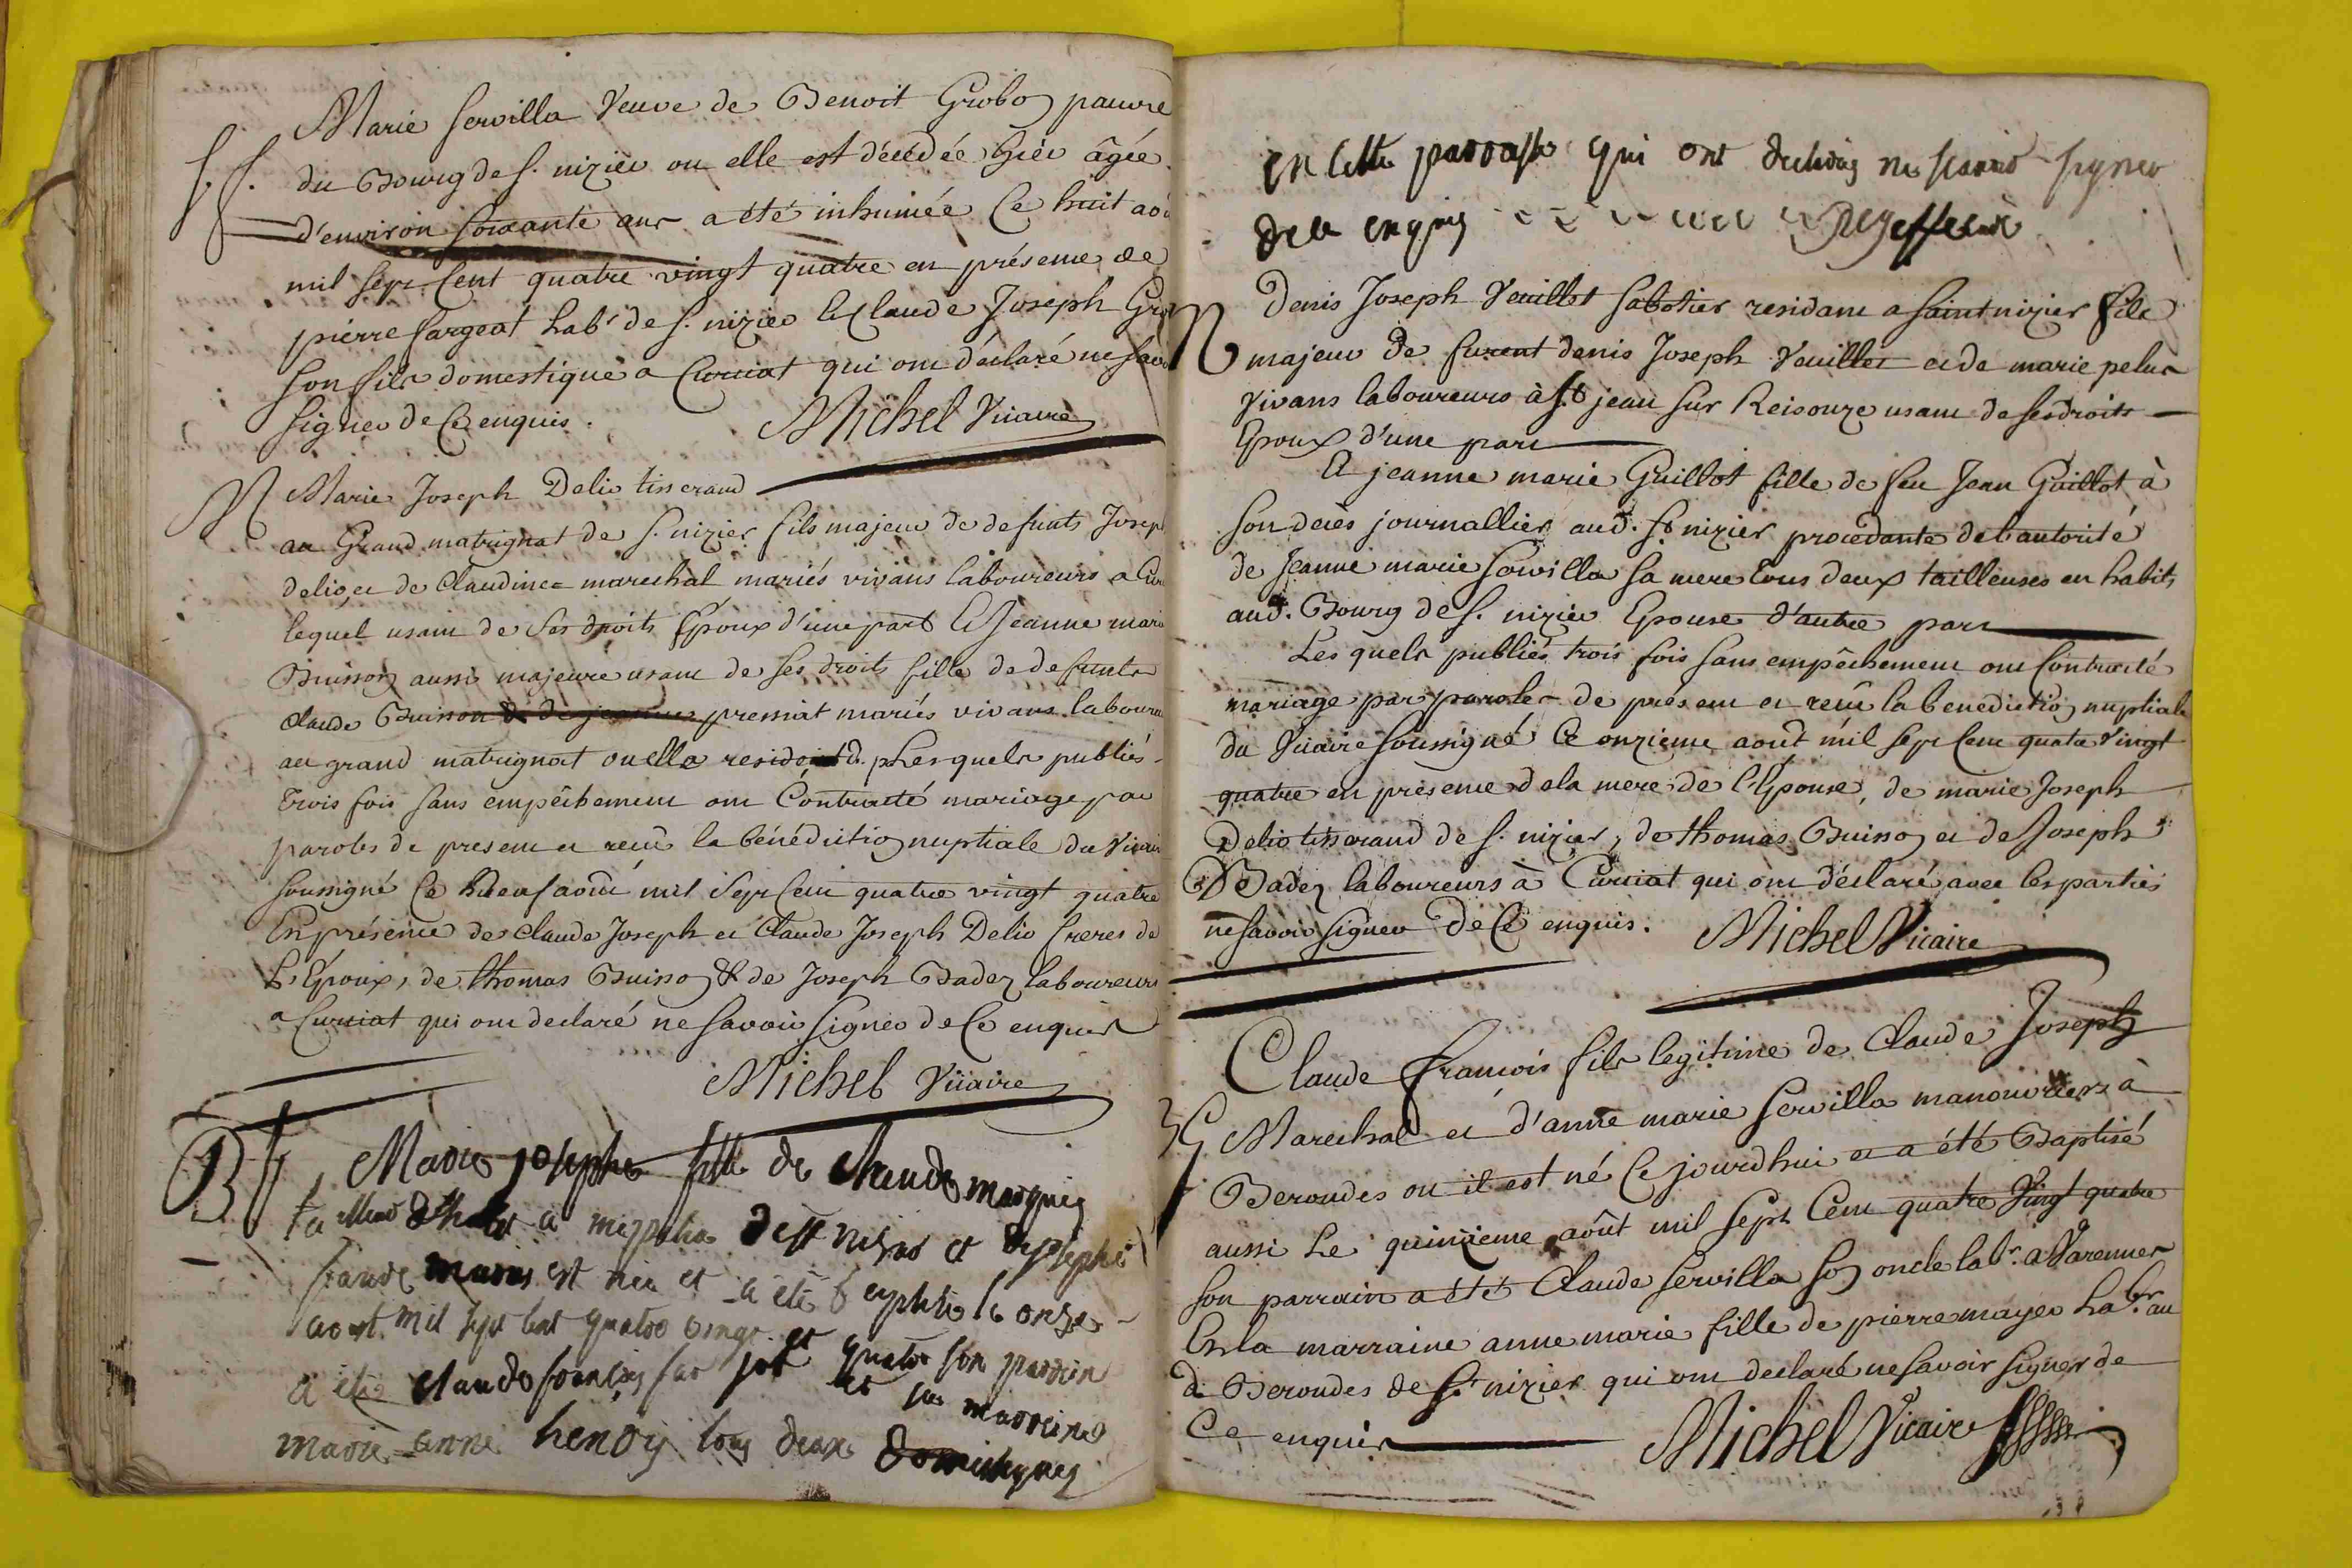 Marie Servilla Veuve de Benoit Grobo pauvre
du Bourg de S. nizier ou elle est décédée hier âgée
S S. d'environ soixante ans a été inhumée Ce huit
mil sept Cent quatre vingt quatre en présence de
pierre sargeat Labr de S. nizier et Claude Joseph
son fils domestique a Curciat qui ont déclaré ne
signer de Ce enquis.
Michel Vicaire
M Marie Joseph Delio tisserand
au Grand matrignat de S. nizier fils majeur de defunts
delio et de Claudine marechal mariés vivans laboureurs a
lequel usant de ses droits Epoux d'une part Et Jeanne
Buisson aussi majeure usant de ses droits fille de defunts
Claude Buisson & de jeanne premiat mariés vivans
au grand matrignat ou elle Lesquels publiés
trois fois sans empêchement ont Contracté mariage par
paroles de present et reçu la bénédiction nuptiale du
soussigné Ce neuf août mil Sept Cent quatre vingt quatre
En présence de Claude Joseph et Claude Joseph Delio freres de
L'Epoux, de thomas Buisson & de Joseph Badez laboureurs
a Curciat qui ont declaré ne Savoir signer de Ce enquis
Michel Vicaire
B Marie josephe fille de Claude
a et
est née et a été le onze
aout mil sept cent quatre vingt et quatre son
a été Claude françois et sa
marie anne tous deux domestiques
en cette qui ont ne signer
de ce enquis
M Denis Joseph Veuillet Sabotier residant a saint nizier fils
majeur de furent denis Joseph Veuillet et de marie pelus
vivans laboureurs à St jean sur Reisouze usant de ses droits
Epoux d'une part
Et jeanne marie Guillot fille de feu Jean Guillot à
son decès journallier aud. St nizier procedante de l'autorité
de Jeanne marie Servilla sa mere tous deux tailleuses en habits
aud. Bourg de S. nizier Epouse d'autre part
Lesquels publiés trois fois sans empêchement ont Contracté
mariage par paroles de présent et reçu la benediction nuptiale
du Vicaire soussigné Ce onzieme août mil sept Cent quatre Vingt
quatre en présence de la mere de l'Epouse, de marie Joseph
Delio tisserand de S. nizier, de thomas Buisson et de Joseph
Badez laboureurs à Curciat qui ont déclaré avec les parties
ne savoir signer De Ce enquis.
Michel Vicaire
Claude francois fils legitime de Claude Joseph
Marechal et d'anne marie Servilla manouvriers à
Beroudes ou il est né Ce jourdhui et a été Baptisé
aussi Le quinzieme août mil Sept Cent quatre Vingt quatre
son parrain a été Claude Servilla son oncle labr. a Varennes
Et la marraine anne marie fille de pierre mayer Labr. au
d. Beroudes de St nizier qui ont declaré ne savoir signer de
Ce enquis
Michel Vicaire